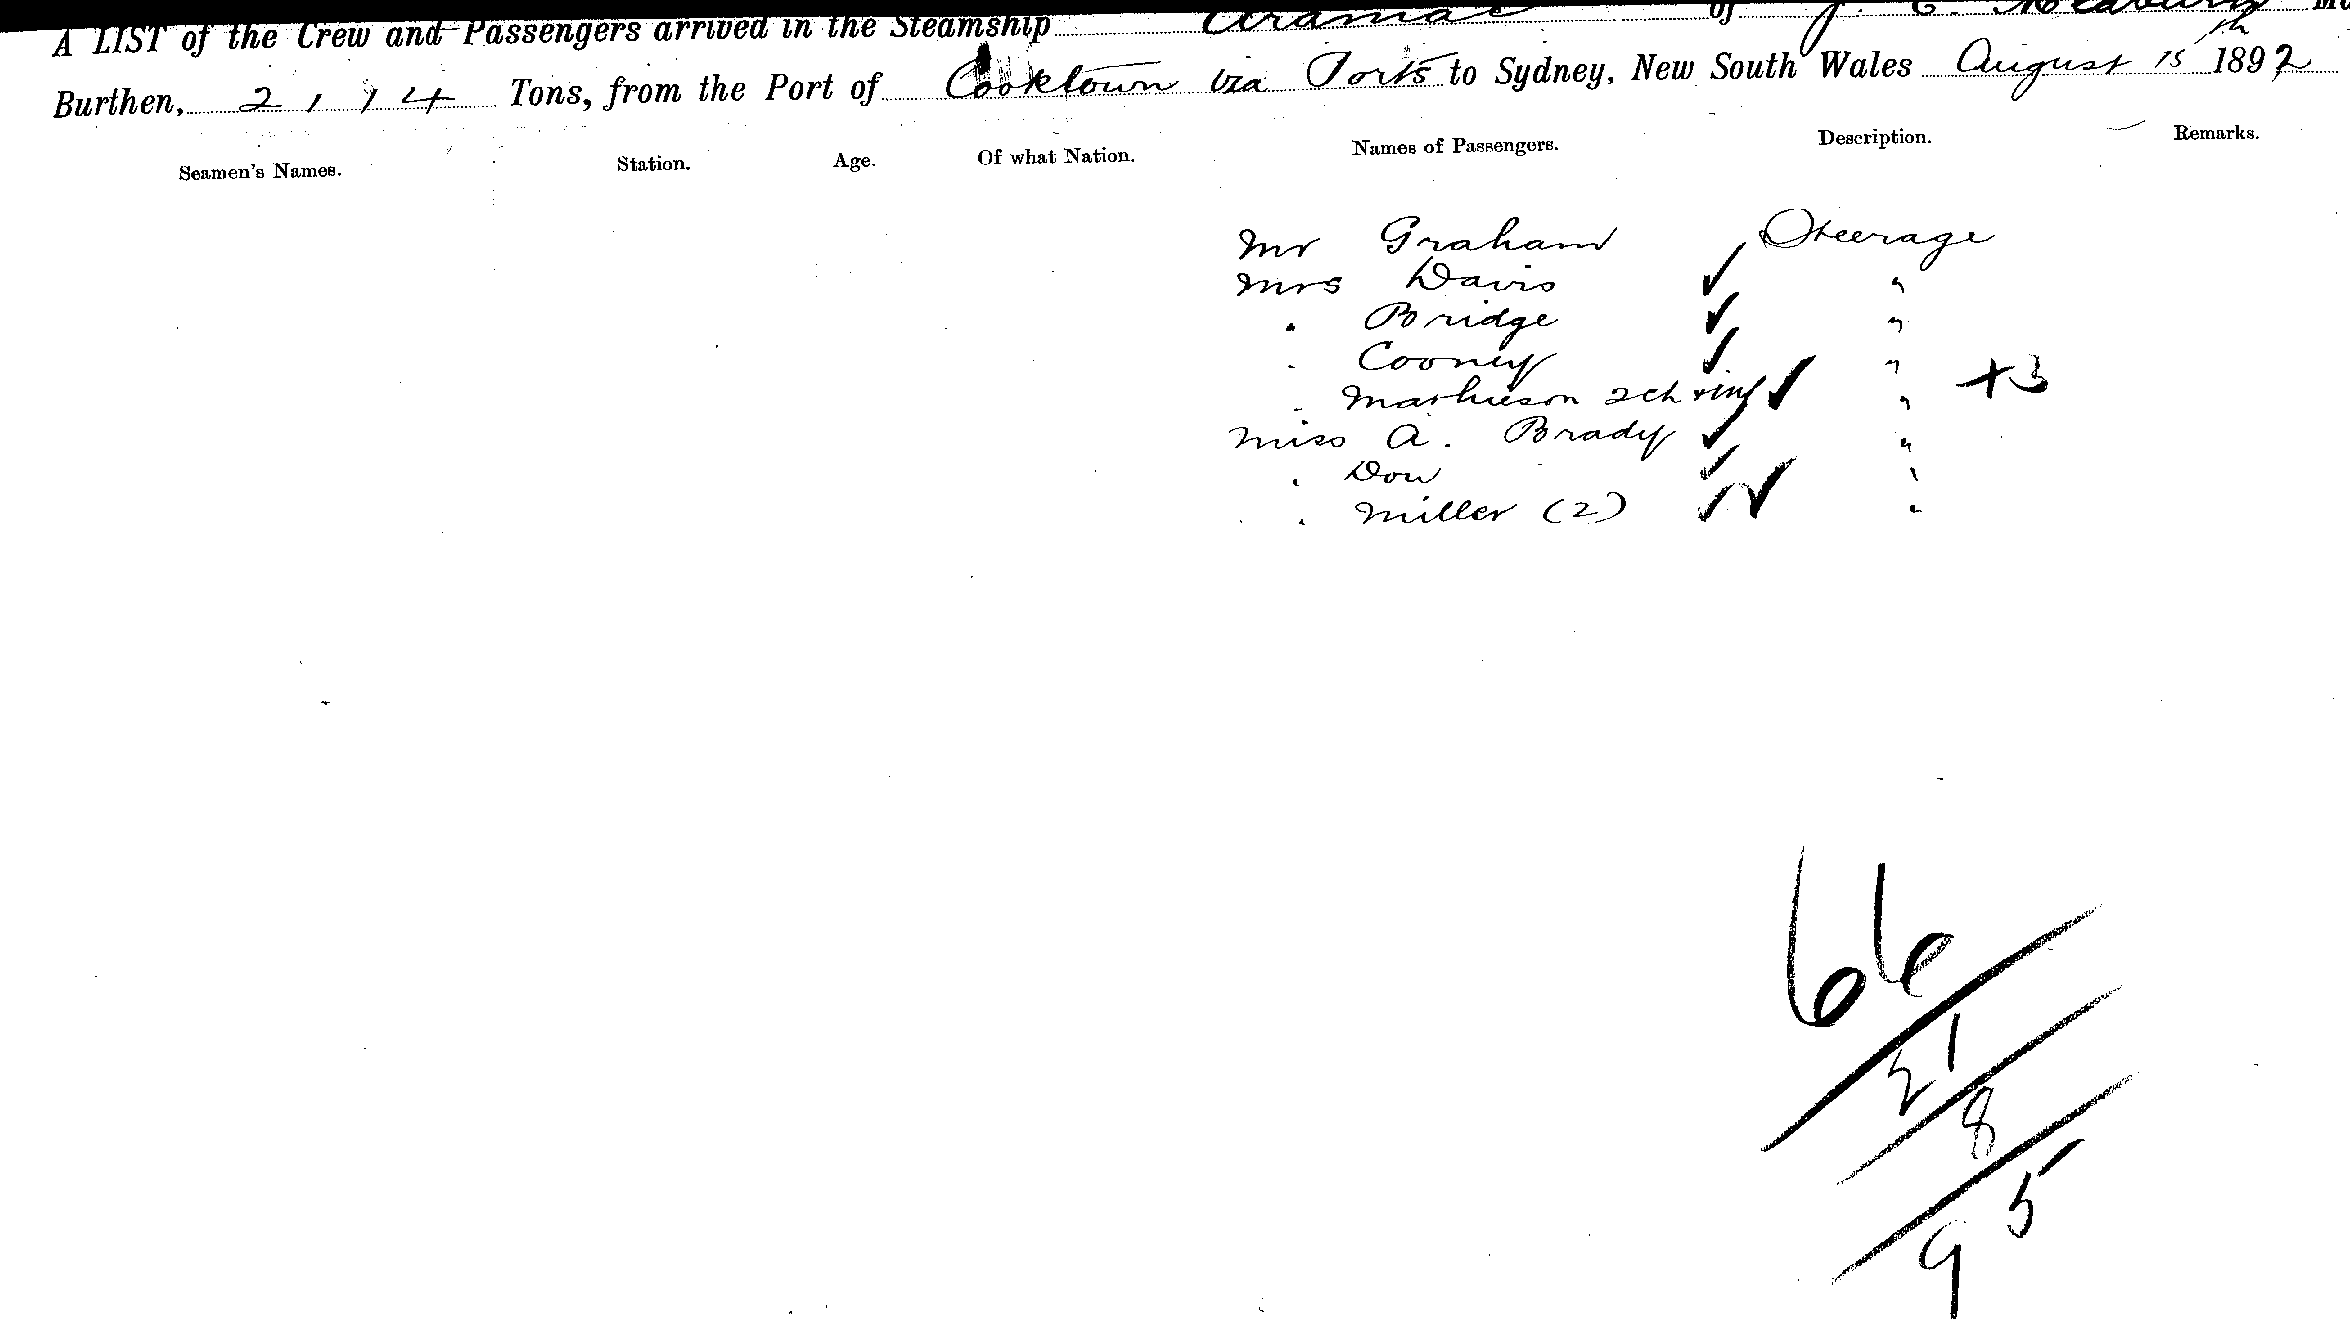 A LIST of the Crew and Passengers arrived in the Steamship Aramac of J. C.
Burthen, 2114 Tons, from the Port of Cooktown via Ports to Sydney, New South Wales August 15th 1892
Seamen's Names. Station. Age. Of what Nation. Names of Passengers. Description. Remarks.
Mr Graham Steerage
Mrs Davis "
" Bridge "
" Cooney "
" Mathieson 2 ch + inf " +3
Miss A. Brady "
" Dow "
" Miller (2) "
66
21
8
95